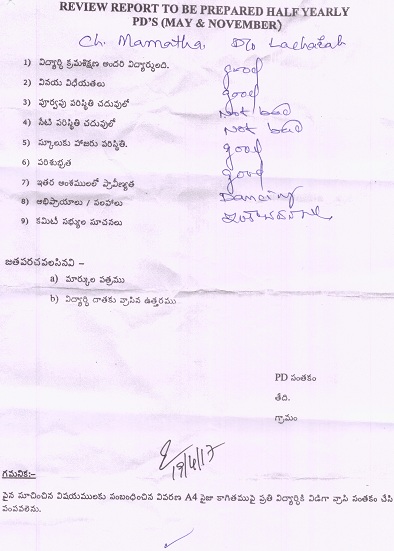 REVIEW REPORT TO BE PREPARED HALF YEARLY
PD'S (MAY & NOVEMBER)
Ch. Mamatha, D/o Lachaiah
1) విద్యార్థి క్రమశిక్షణ అందరి విద్యార్థులది. good
2) వినయ విధేయతలు good
3) పూర్వపు పరిస్థితి చదువులో Not bad
4) నేటి పరిస్థితి చదువులో Not bad
5) స్కూలుకు హాజరు పరిస్థితి. good
6) పరిశుభ్రత good
7) ఇతర అంశములలో ప్రావీణ్యత Dancing
8) అభిప్రాయాలు / సలహాలు
9) కమిటీ సభ్యుల సూచనలు
జతపరచవలసినవి -
a) మార్కుల పత్రము
b) విద్యార్థి దాతకు వ్రాసిన ఉత్తరము
PD సంతకం
తేది.
గ్రామం
19/6/17
గమనిక:-
పైన సూచించిన విషయములకు సంబంధించిన వివరణ A4 సైజు కాగితముపై ప్రతి విద్యార్థికి విడిగా వ్రాసి సంతకం చేసి
పంపవలెను.